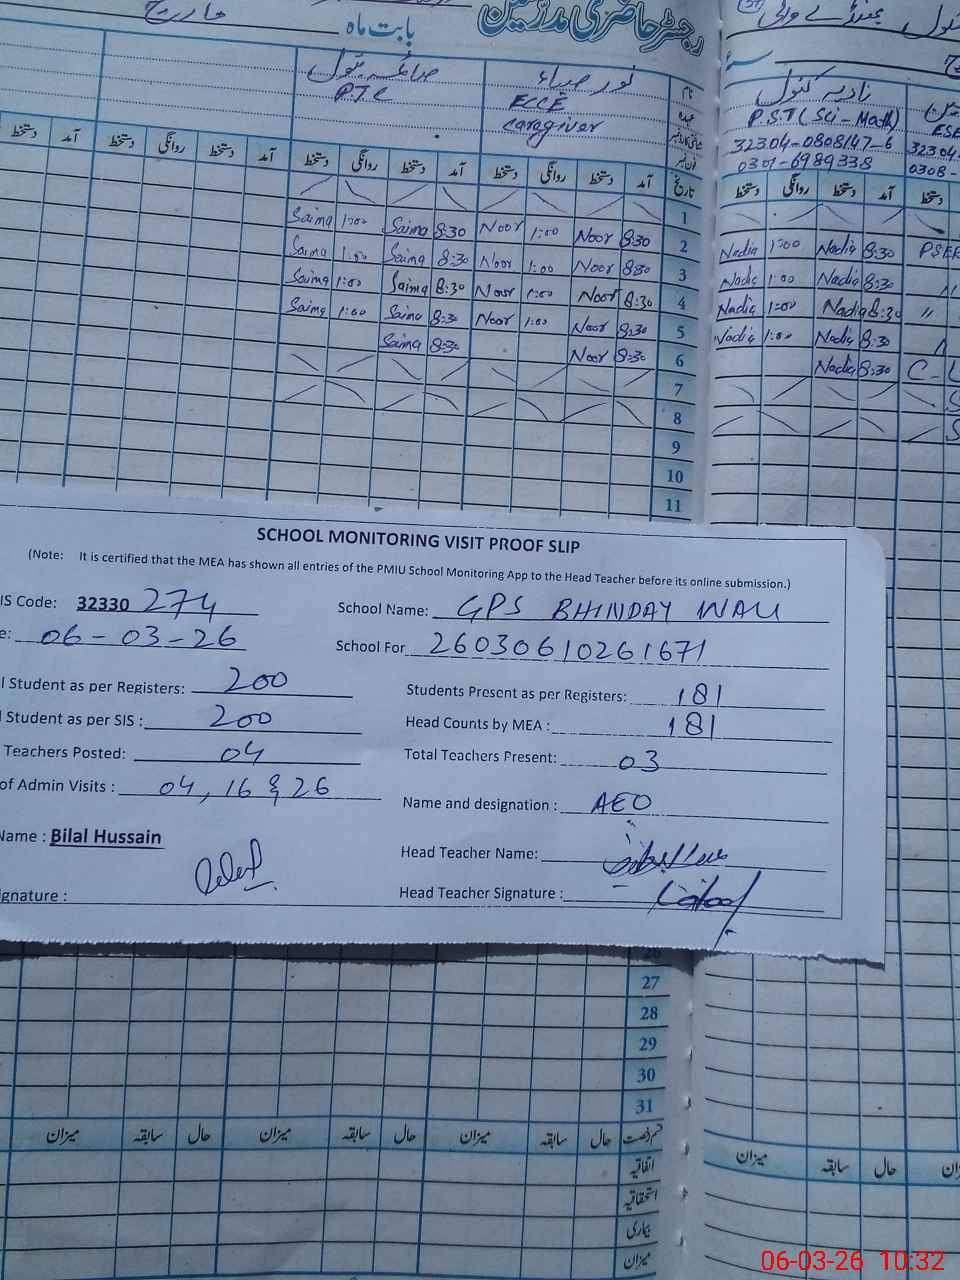 رجسٹر حاضری مدرسین
بابت ماہ
مارچ
نام
نور
ECCE
Caregiver
P.T.C
نادیہ کنول
P.S.T (Sci-Math)
32304-0808147-6
0301-6989338
32304-
0308-
تاریخ آمد دستخط روانگی دستخط آمد دستخط روانگی دستخط آمد دستخط روانگی دستخط آمد دستخط
دستخط آمد دستخط روانگی دستخط
1
2 8:30 Noor 1:00 Noor 8:30 Saima 1:00 Saima
3 8:30 Noor 1:00 Noor 8:30 Saima 1:00 Saima
4 8:30 Noor 1:00 Noor 8:30 Saima 1:00 Saima
5 8:30 Noor 1:00 Noor 8:30 Saima 1:00 Saima
6 8:30 Noor 8:30 Saima
7
8
9
10
11
Nadia 1:00 Nadia 8:30
Nadia 1:00 Nadia 8:30
Nadia 1:00 Nadia 8:30
Nadia 1:00 Nadia 8:30
Nadia 8:30
SCHOOL MONITORING VISIT PROOF SLIP
(Note: It is certified that the MEA has shown all entries of the PMIU School Monitoring App to the Head Teacher before its online submission.)
IS Code: 32330 274 School Name: GPS BHINDAY WALI
e: 06-03-26 School For 26030610261671
l Student as per Registers: 200 Students Present as per Registers: 181
l Student as per SIS : 200 Head Counts by MEA : 181
Teachers Posted: 04 Total Teachers Present: 03
of Admin Visits : 04, 16 & 26 Name and designation : AEO
Name : Bilal Hussain Head Teacher Name:
gnature : Head Teacher Signature :
26
27
28
29
30
31
قسم رخصت حال سابقہ میزان حال سابقہ میزان حال سابقہ میزان
حال سابقہ میزان
اتفاقیہ
استحقاقیہ
بیماری
میزان
06-03-26 10:32